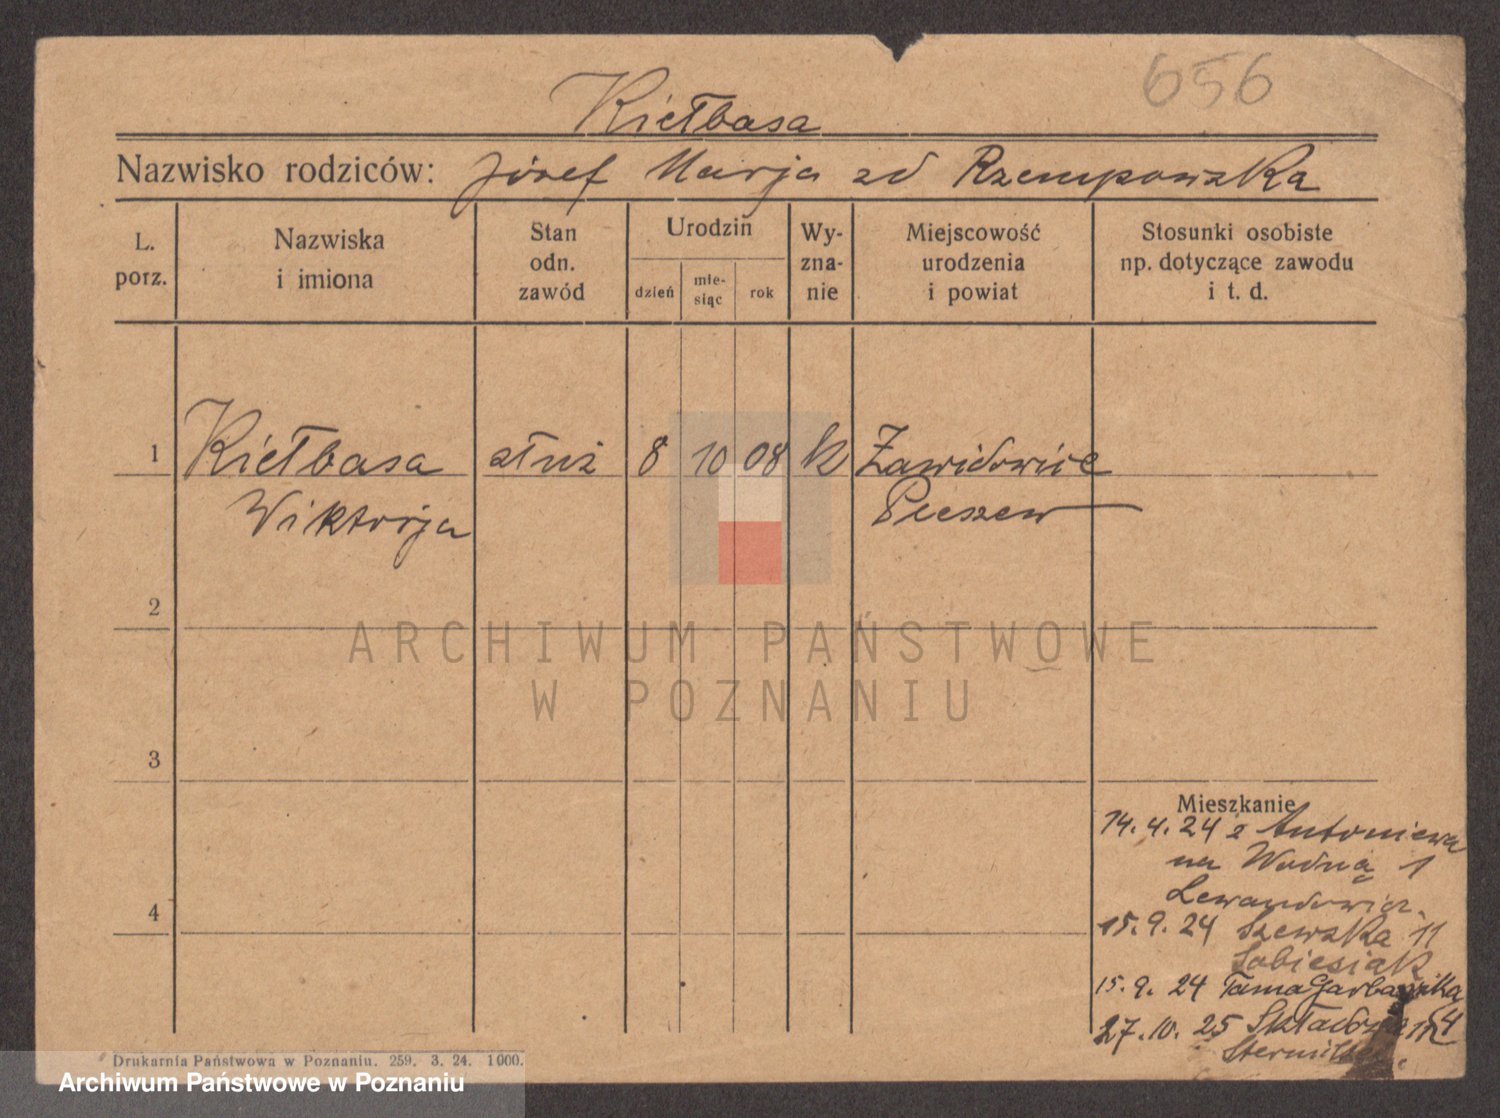 656
Kiełbasa
Nazwisko rodziców: Józef Marja zd Rzempowska
L. porz.
Nazwiska i imiona
Stan odn. zawód
Urodzin
dzień
mie-siąc
rok
Wy-zna-nie
Miejscowość urodzenia i powiat
Stosunki osobiste np. dotyczące zawodu i t. d.
1 Kiełbasa służ 8 10 08 k Zawidowice
Wiktorja Pleszew
2
3
4
Mieszkanie
14. 4. 24 z Antoniewa
na Wodną 1
Lewandowicz.
15. 9. 24 Szewska 11
Sobiesiak
15. 9. 24 Tama Garbarska
27. 10. 25
Drukarnia Państwowa w Poznaniu. 259. 3. 24. 1000.
ARCHIWUM PAŃSTWOWE
W POZNANIU
Archiwum Państwowe w Poznaniu